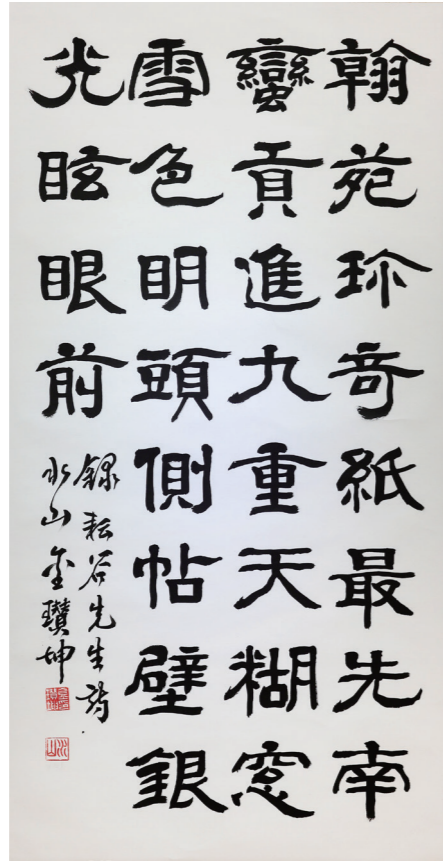 翰苑珎竒紙最先南
蠻貢進九重天糊窓
雪色眀頭側帖壁銀
光眩眼前
錄耘谷先生詩
氷山金瓚坤
氷山